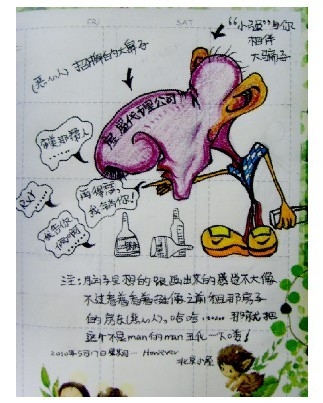 FRI SAT
"小强"与你
相伴
大骗子
(恶心人) 超级大鼻子
房屋代理公司
再得瑟,
我告你!
被告你
注:脑子里想的跟画出来的感觉不大像
不过看着看着挺像之前租那房子
的房东(恶心人),哈哈……那就把
这个不是man的man丑化一下喽!
2010年5月17日星期一 However
北京小屋